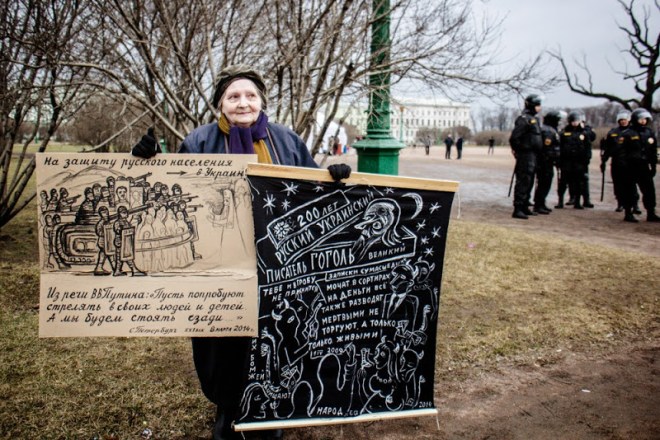 На защиту русского населения
в Украине
Из речи ВВПутина: "Пусть попробуют
стрелять в своих людей и детей.
А мы будем стоять сзади...
с. Петербург
8 марта 2014г.
200 лет
Русский украинский
писатель Гоголь великий
Записки сумасшедш
Тебе и гробу
не прижать
мочат в сортирах
на деньги всё
также разводят
мёртвыми не
торгуют, а только
только живыми
2009
народ
2014